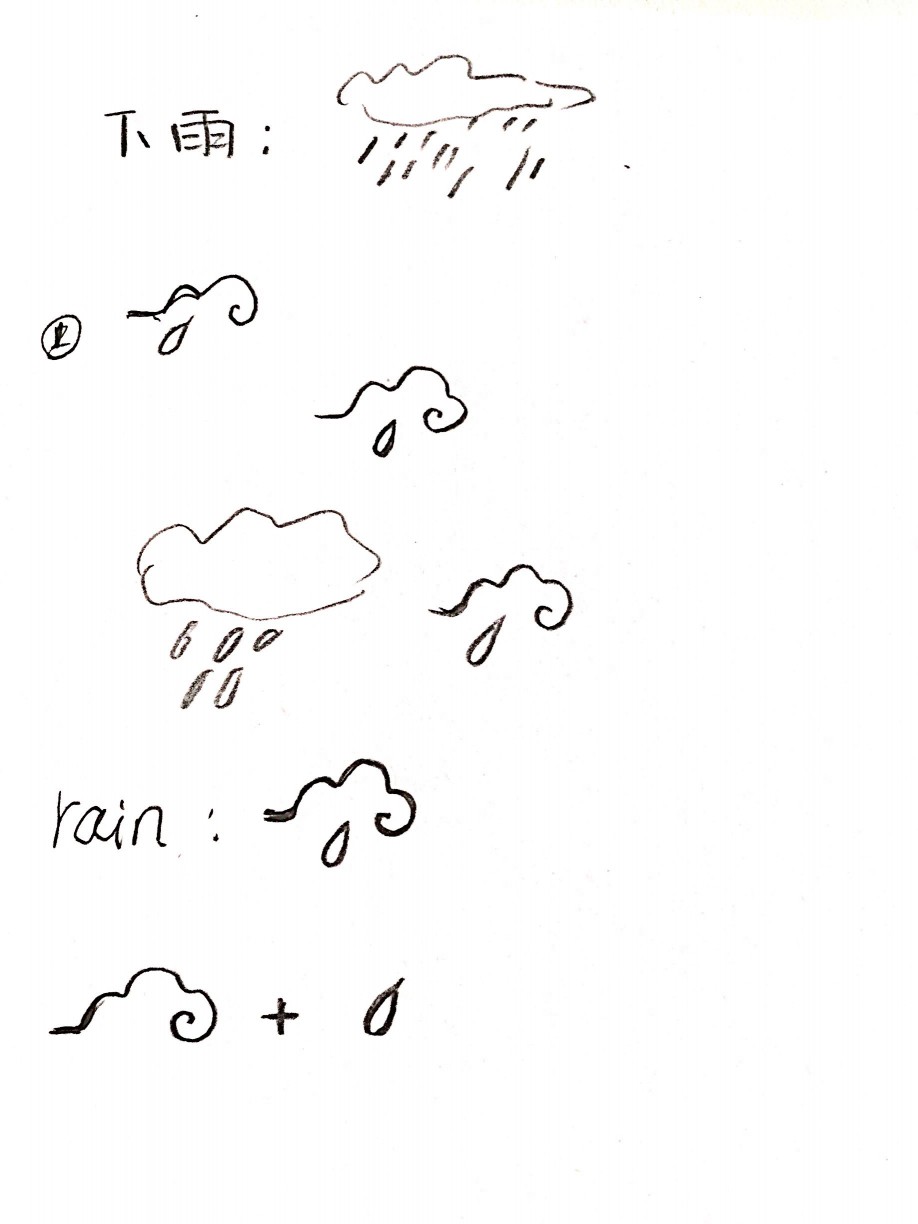 下雨:
rain:
+